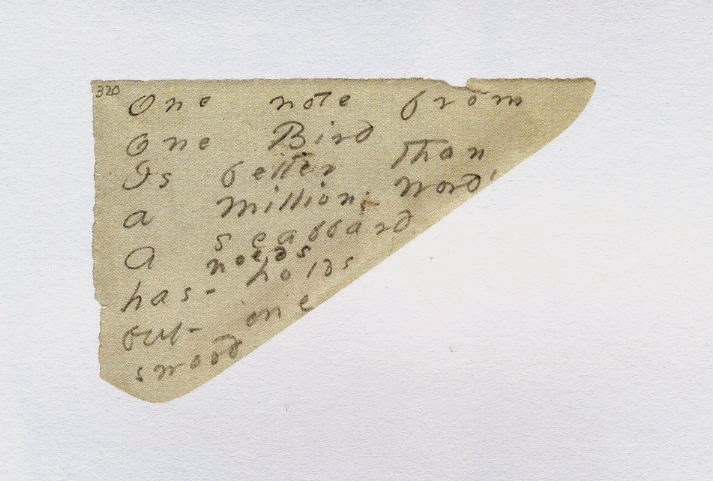 320
One note from
One Bird
Is better than
a million word
A scabbard
needs
has - holds
but - one
sword